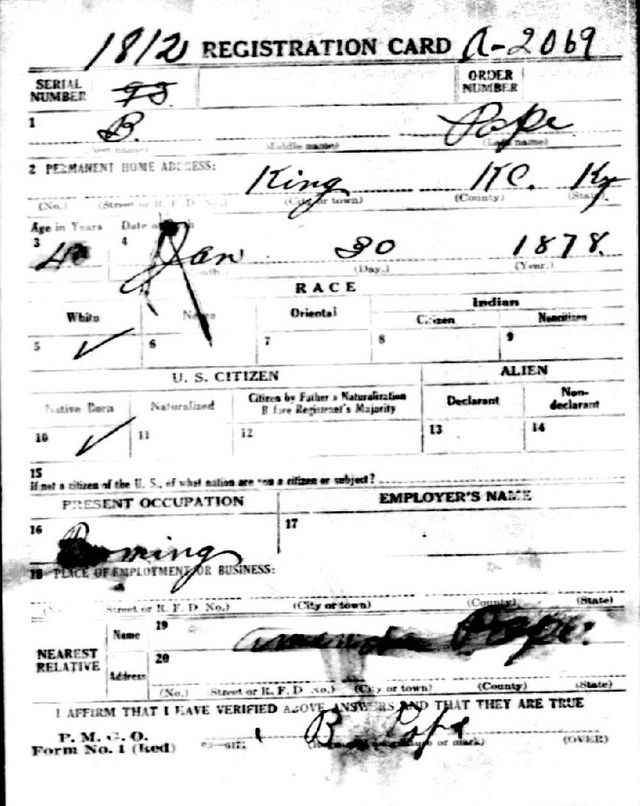 1812 REGISTRATION CARD A-2069
SERIAL NUMBER ORDER NUMBER
1 B. Pope
(Middle name) (Last name)
2 PERMANENT HOME ADDRESS:
King KC. Ky
(No.) (Street or R. F. D. No.) (City or town) (County) (State)
Age in Years Date of
3 4 Jan 30 1878
(Day.) (Year.)
RACE
White Negro Oriental Indian
Citizen Noncitizen
5 ✓ 6 7 8 9
U. S. CITIZEN ALIEN
Native Born Naturalized Citizen by Father's Naturalization Before Registrant's Majority Declarant Non-declarant
10 ✓ 11 12 13 14
15
If not a citizen of the U. S., of what nation are you a citizen or subject?
PRESENT OCCUPATION EMPLOYER'S NAME
16 17
18 PLACE OF EMPLOYMENT OR BUSINESS:
(No.) (Street or R. F. D. No.) (City or town) (County) (State)
NEAREST RELATIVE Name 19 Amanda Pope.
Address 20
(No.) (Street or R. F. D. No.) (City or town) (County) (State)
I AFFIRM THAT I HAVE VERIFIED ABOVE ANSWERS AND THAT THEY ARE TRUE
P. M. G. O.
Form No. 1 (Red) B Pope
(Registrant's signature or mark) (OVER)